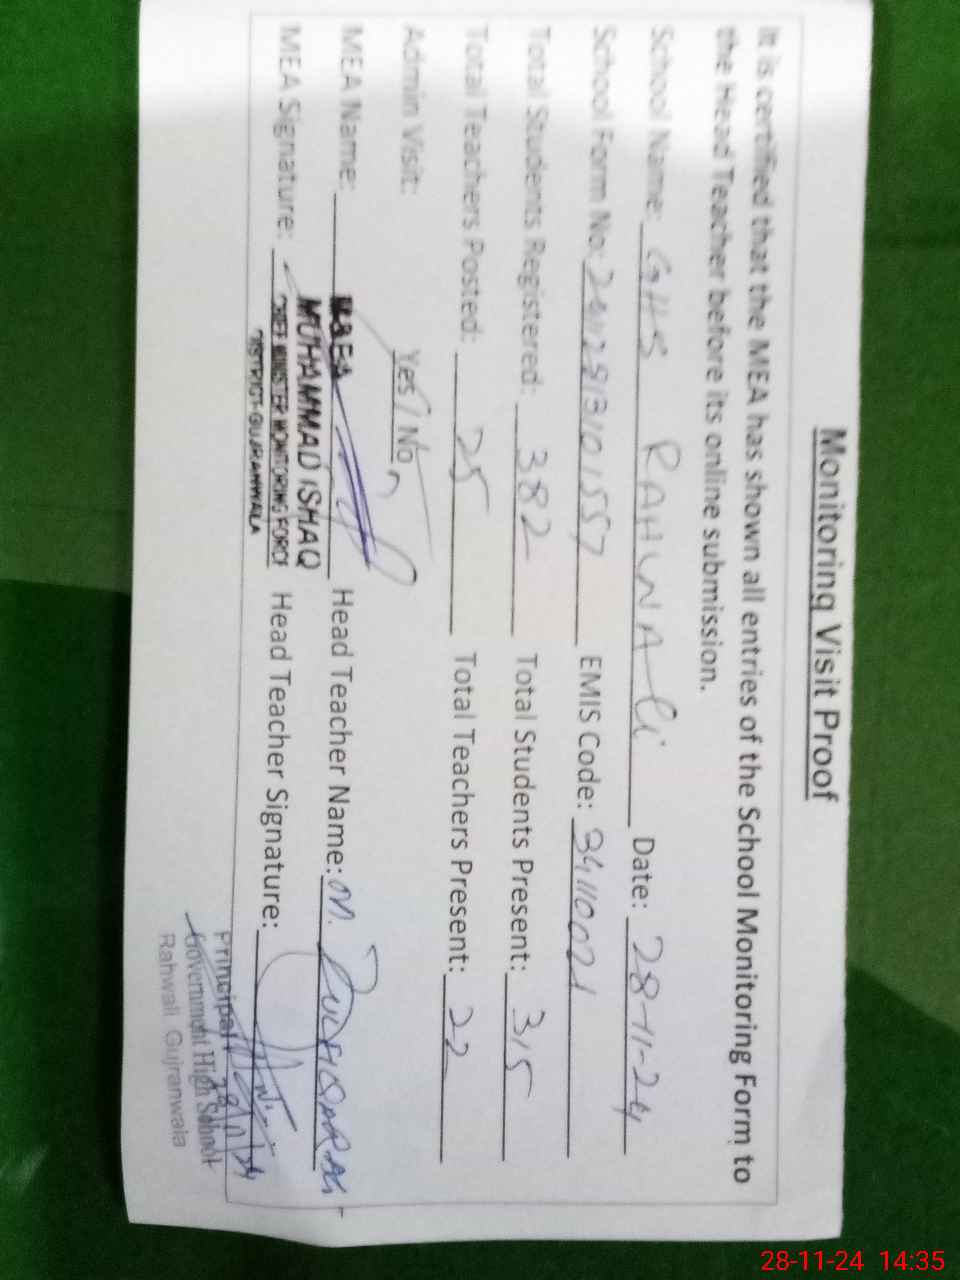 Monitoring Visit Proof
It is certified that the MEA has shown all entries of the School Monitoring Form to
the Head Teacher before its online submission.
School Name: GHS RAHWALi Date: 28-11-24
School Form No: EMIS Code: 34110021
Total Students Registered: 382 Total Students Present: 315
Total Teachers Posted: 25 Total Teachers Present: 22
Admin Visit: Yes / No
MEA Name: Head Teacher Name: M.
MUHAMMAD ISHAQ
MEA Signature: CHIEF MINISTER MONITORING FORCE Head Teacher Signature:
DISTRICT-GUJRANWALA
Principal
Government High School
Rahwali Gujranwala
28-11-24 14:35